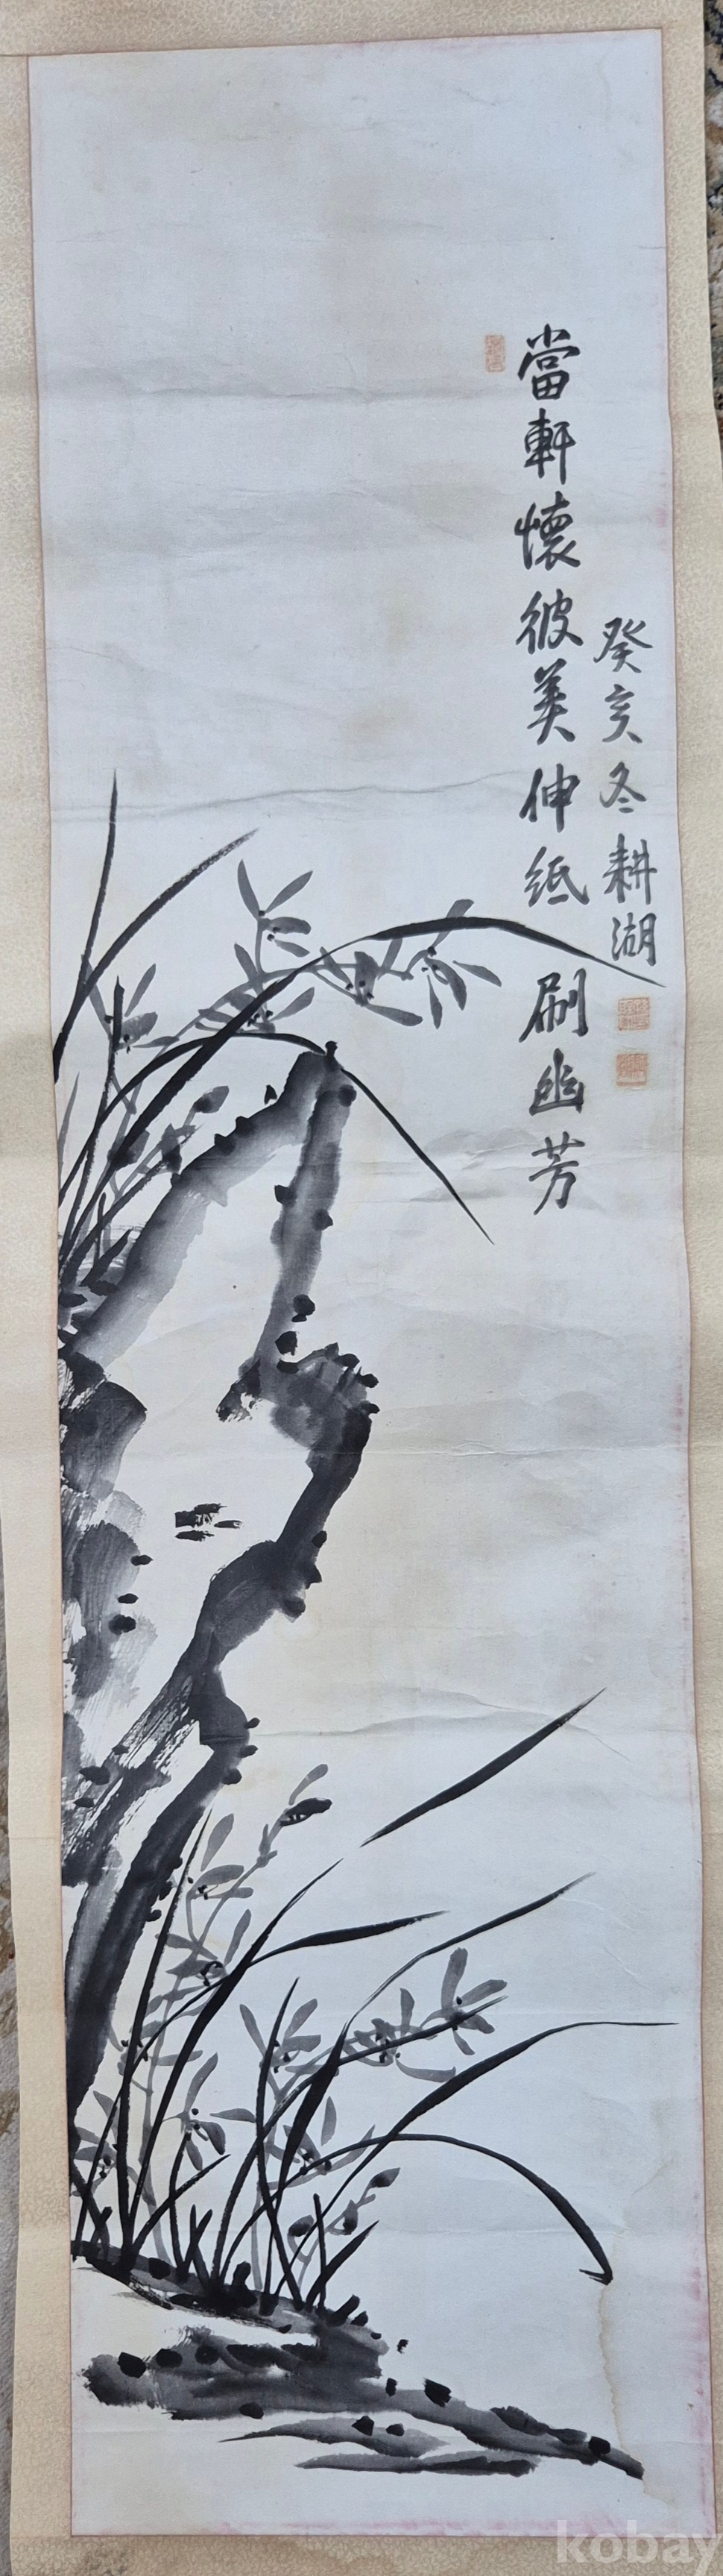 當軒懷彼美伸紙刷幽芳
癸亥冬耕湖
kobay